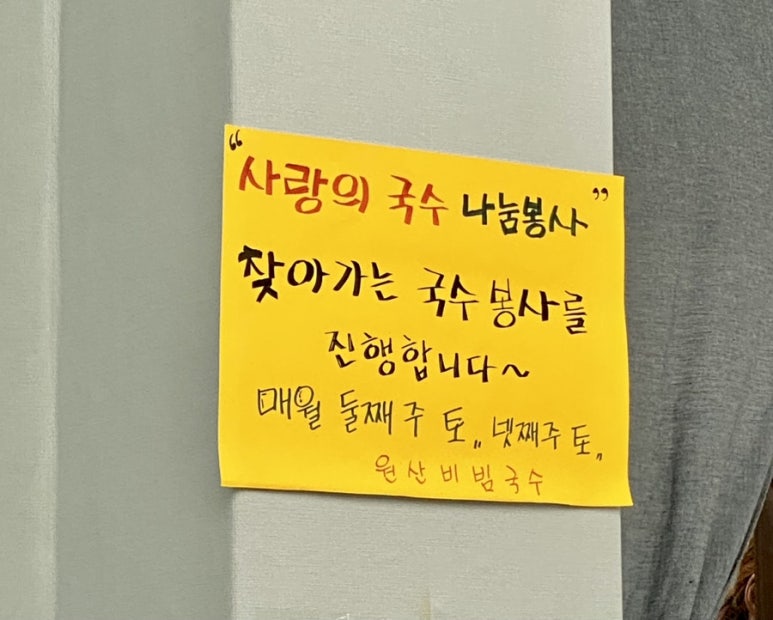 “사랑의 국수 나눔봉사”
찾아가는 국수 봉사를
진행합니다~
매월 둘째주 토,, 넷째주 토,,
원산비빔국수